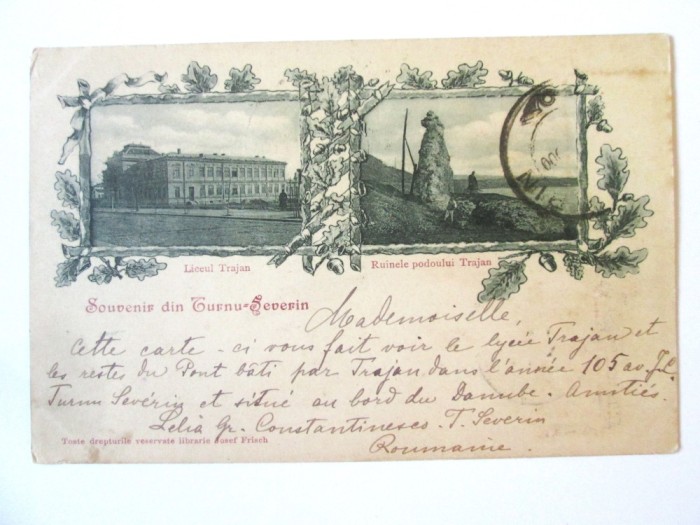 Liceul Trajan
Ruinele podoului Trajan
Souvenir din Turnu-Severin
Mademoiselle,
Cette carte-ci vous fait voir le lycée Trajan et
les restes du Pont bâti par Trajan dans l'année 105 av J.C.
Turnu Sevérin et situé au bord du Danube. Amitiés.
Lelia Gr. Constantinesco. T. Severin
Roumanie.
Toate drepturile reservate librarie Josef Frisch